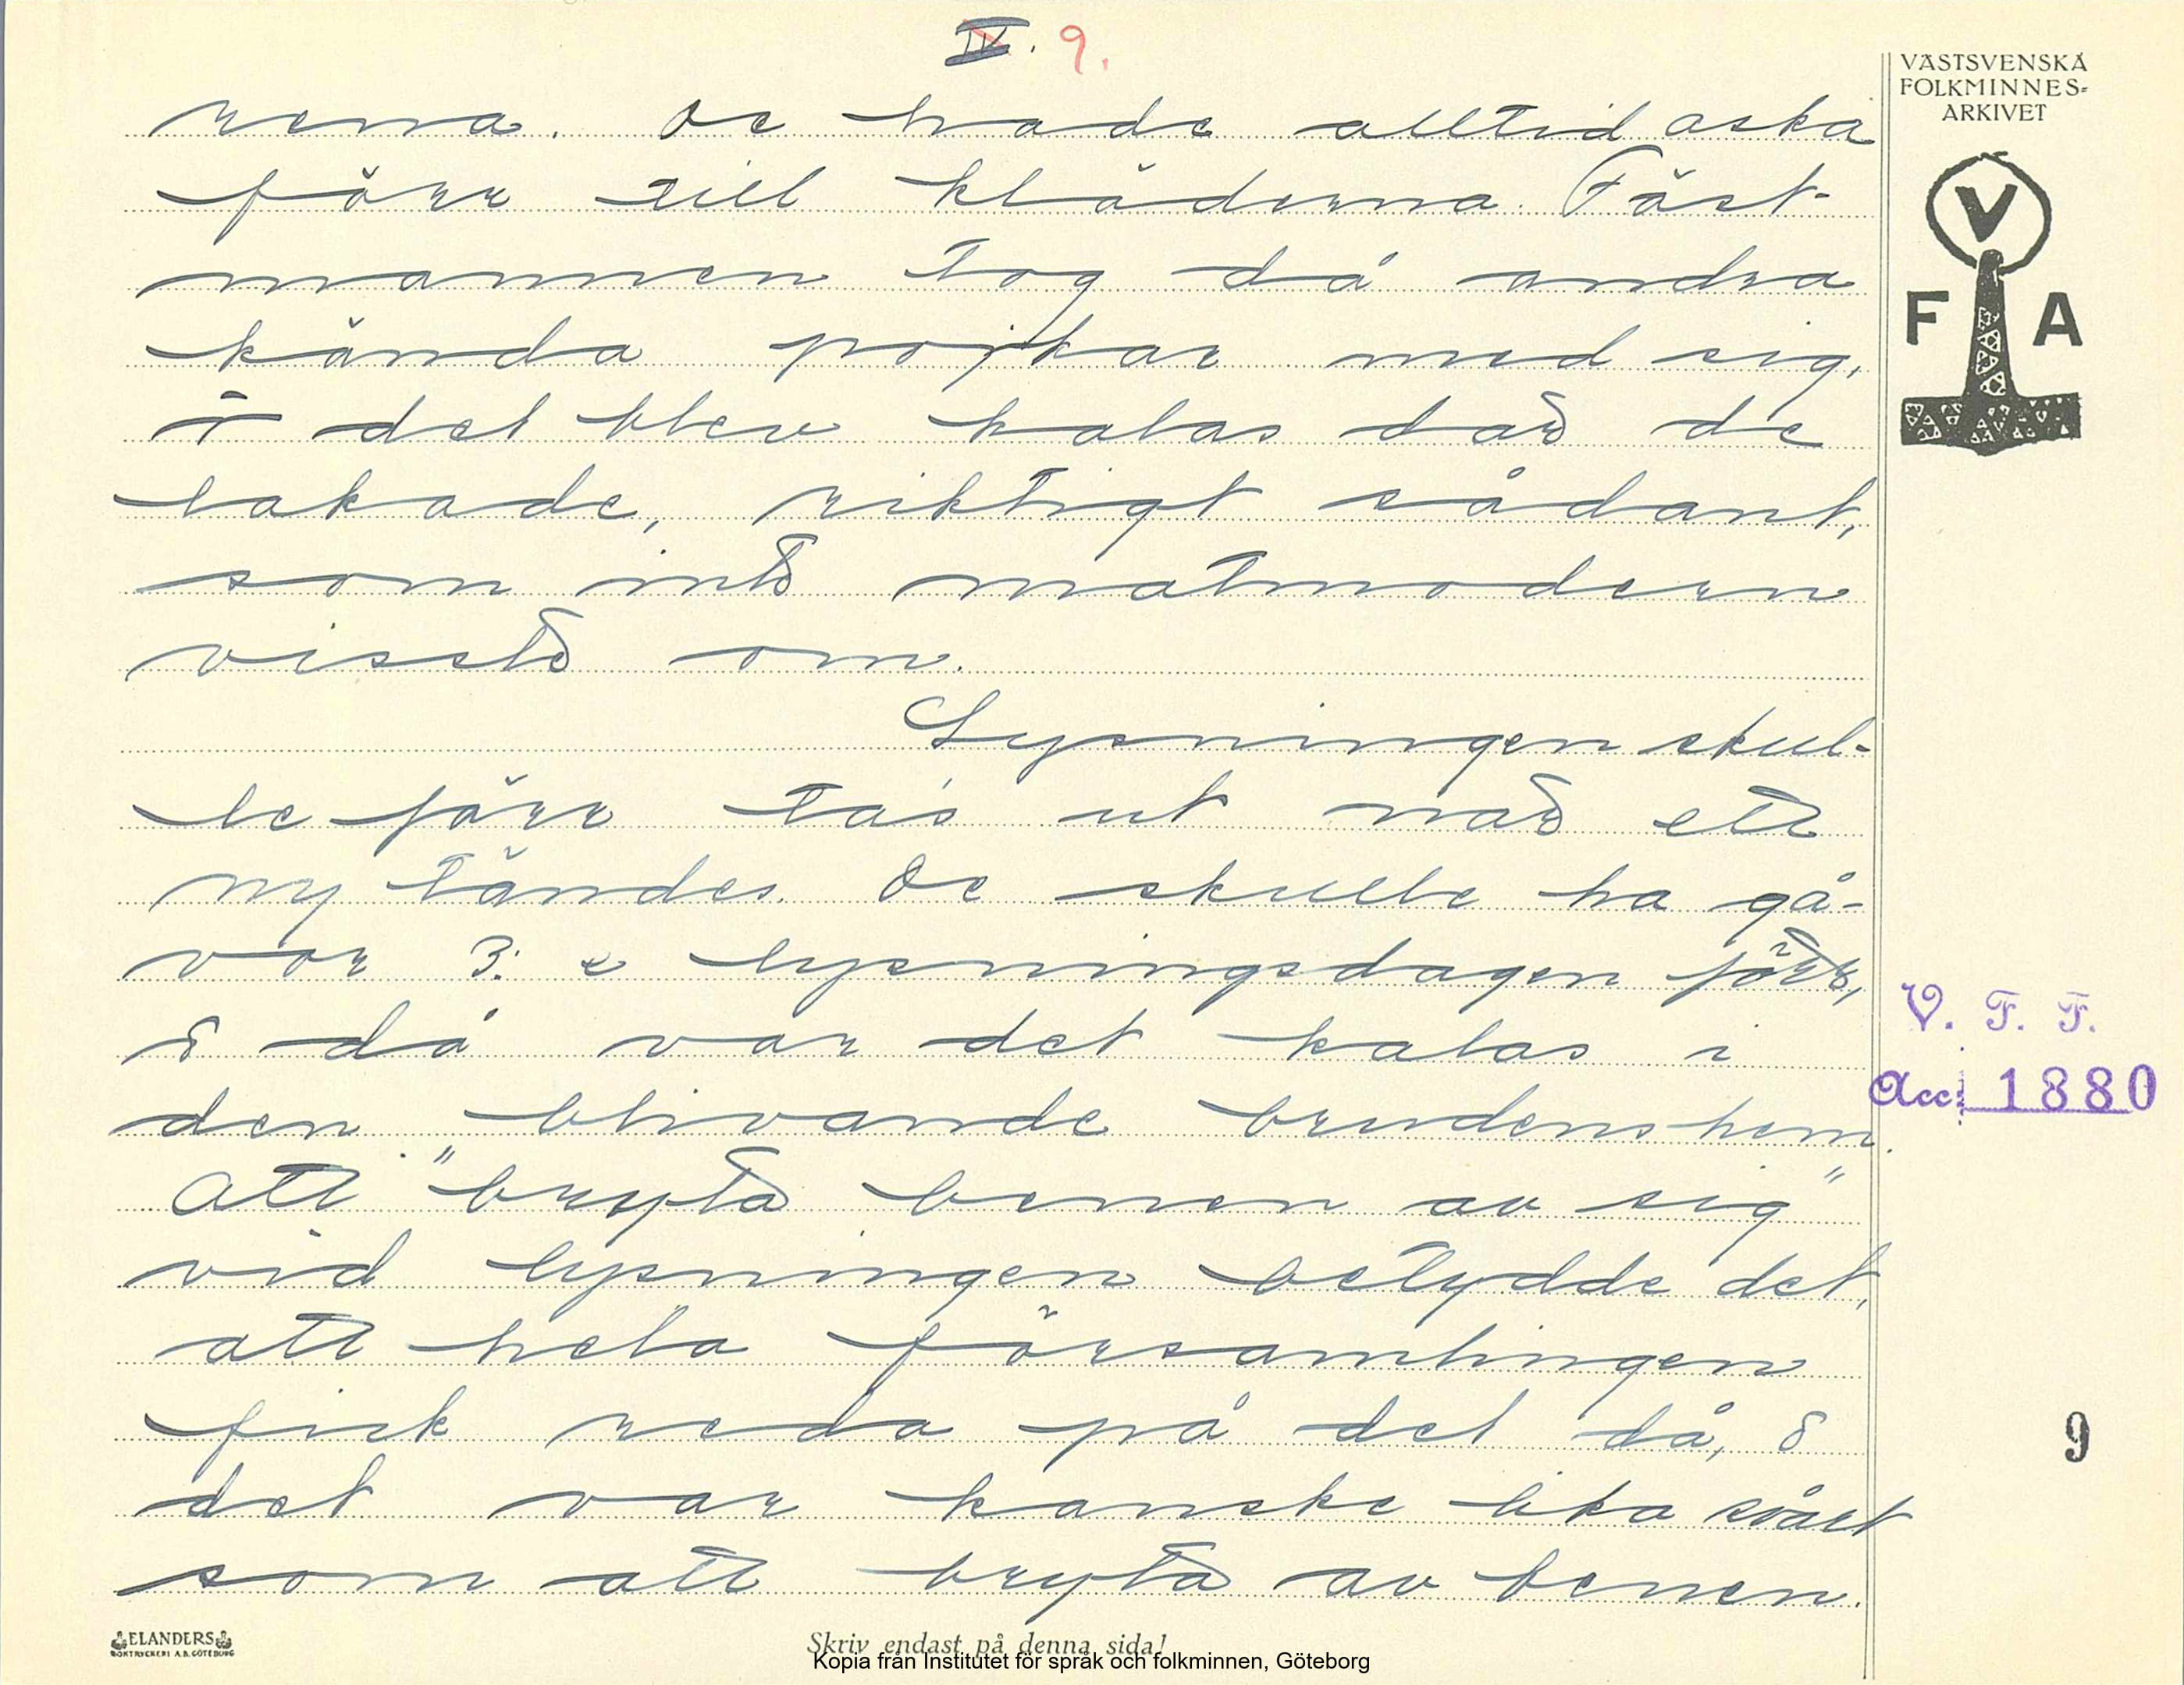 IV. 9.
VÄSTSVENSKA
FOLKMINNES-
ARKIVET
V
F A
rena. De hade alltid aska
förr till kläderna. Fäst-
mannen tog då andra
kända pojkar med sig,
å det blev kalas där de
lakade, riktigt sådant,
som inte matmodern
visste om.
Lysningen skul-
le förr tas ut när ett
ny tändes. De skulle ha gå-
vor 3:e lysningsdagen förr,
& då var det kalas i
den blivande brudens hem.
Att "bryta benen av sig"
vid lysningen betydde det,
att hela församlingen
fick reda på det då, &
det var kanske lika svårt
som att bryta av benen.
V. F. F.
Acc: 1880
9
ELANDERS
BOKTRYCKERI A.B. GÖTEBORG
Skriv endast på denna sida!
Kopia från Institutet för språk och folkminnen, Göteborg